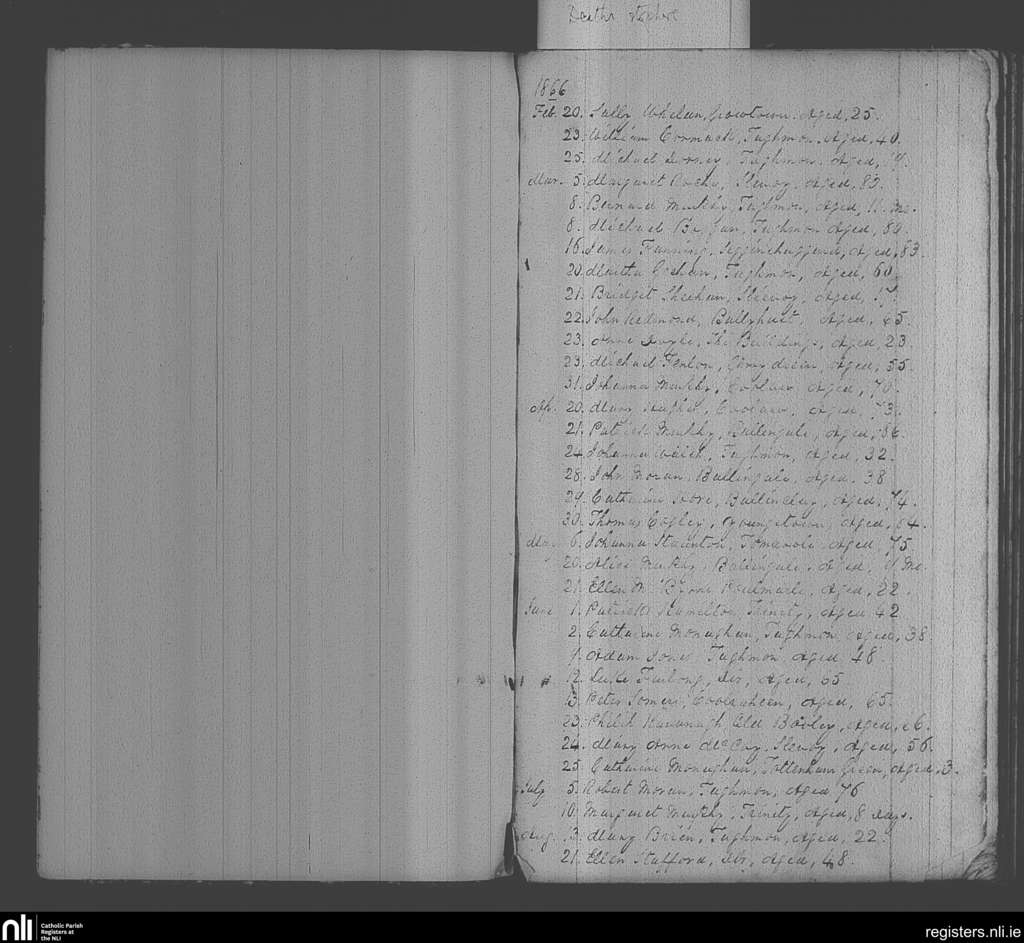 Deaths
1866
Feb. 20. Sally Whelan, Growtown. Aged, 25.
23. William Cormack, Taghmon. Aged, 40.
25. Michael Taghmon. Aged,
Mar. 5. Margaret Roche, Sleavoy. Aged, 83.
8. Bernard Murphy, Taghmon, Aged, 11. Mo.
8. Michael Taghmon Aged, 84.
16. James Fanning, Aged, 83.
20. Martha Taghmon, Aged, 60.
21. Bridget Sheehan, Sleavoy, Aged, 17.
22. John Redmond, Ballyhast, Aged, 45.
23. Anne Doyle, The Buildings, Aged, 23.
23. Michael Fenlon, Aged, 55.
31. Johanna Murphy, Coolaw Aged, 70.
Ap. 20. Mary Coolaw, Aged, 73.
21. Patrick Murphy, Ballingale, Aged, 86.
24. Johanna Walsh, Taghmon, Aged, 32.
28. John Moran, Ballingale, Aged. 38
29. Catharine Hore, Ballinclay, Aged, 74.
30. Thomas Cogley, Youngstown, Aged, 64.
May 6. Johanna Staunton, Tomanole. Aged, 75.
20. Alice Murphy, Ballingale, Aged, Mo.
21. Ellen Mc. Byrne Aged, 22.
June 1. Patrick Hamilton, Trinity, Aged 42
2. Catharine Monaghan, Taghmon, Aged, 38
9. Adam Jones Taghmon. Aged 48
12. Luke Furlong, Do, Aged, 65
13. Peter Somers, Coolraheen, Aged, 65.
23. Philip Kavanagh, Old Booley, Aged,
24. Mary Anne McCoy, Sleavoy, Aged, 56.
25. Catharine Monaghan, Tottenham Green, Aged, 3.
July 5. Robert Moran, Taghmon, Aged 76
10. Margaret Murphy, Trinity, Aged, 8 days.
Aug. 3. Mary Brien, Taghmon, Aged, 22.
21. Ellen Stafford, Do, Aged, 48.
nli Catholic Parish
Registers at
the NLI
registers.nli.ie